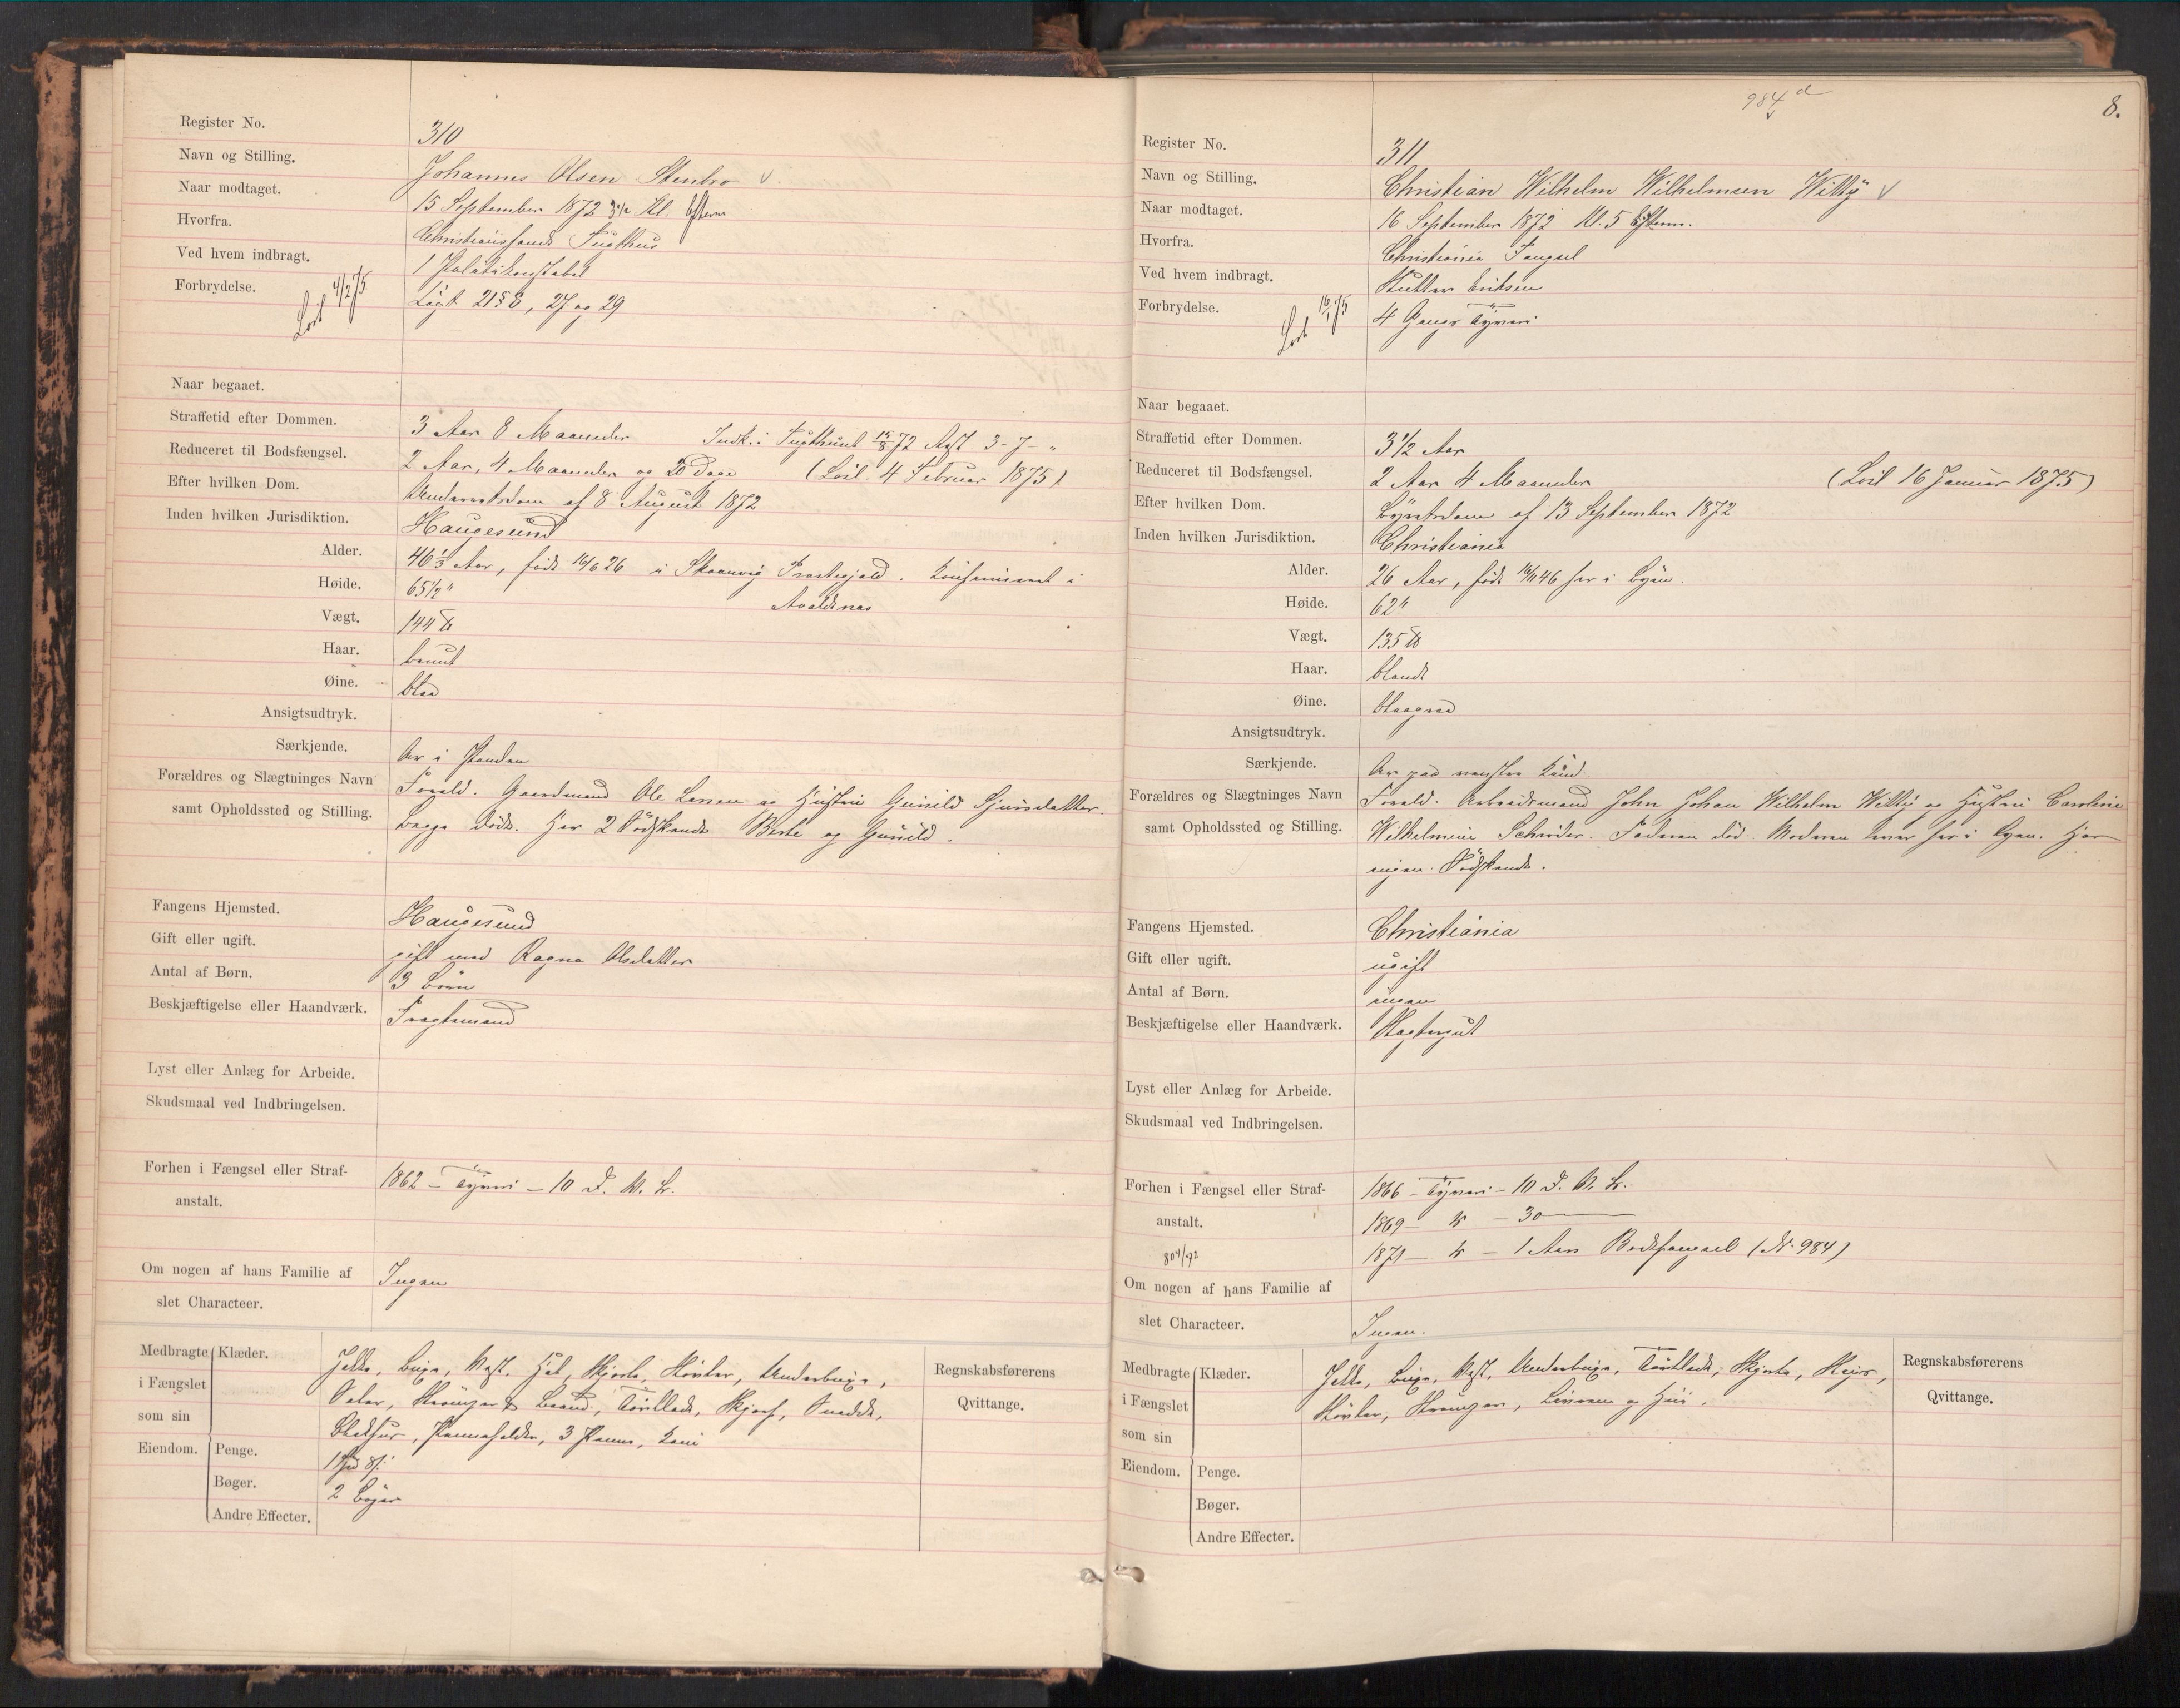 Register No. 310
Navn og Stilling. Johannes Olsen Stenbro
Naar modtaget. 15 September 1872 3½ Kl. Efterm
Hvorfra. Christianssands Tugthus
Ved hvem indbragt. 1 Politikonstabel
Forbrydelse. Løst 4/2 75 Lægt 21 § 8, 27 og 29
Naar begaaet.
Straffetid efter Dommen. 3 Aar 8 Maaneder Indk. i Tugthuset 15/8 72 Rest 3-7-"
Reduceret til Bodsfængsel. 2 Aar, 4 Maaneder og 20 Dage (Løsl. 4 Februar 1875)
Efter hvilken Dom. Underretsdom af 8 August 1872
Inden hvilken Jurisdiktion. Haugesund
Alder. 46⅓ Aar, født 16/6 26 i Skaanevig Præstegjæld. Konfirmeret i
Avaldsnæs
Høide. 65½"
Vægt. 144 ℔
Haar. brunt
Øine. blaa
Ansigtsudtryk.
Særkjende. Ar i Panden
Forældres og Slægtninges Navn Foræld. Gaardmand Ole Larsen og Hustru Gunild Sjursdatter.
samt Opholdssted og Stilling. Begge døde. Har 2 Sødskende Berte og Gunild.
Fangens Hjemsted. Haugesund
Gift eller ugift. gift med Ragna Olsdatter
Antal af Børn. 3 Børn
Beskjæftigelse eller Haandværk. Fragtemand
Lyst eller Anlæg for Arbeide.
Skudsmaal ved Indbringelsen.
Forhen i Fængsel eller Straf- 1862 - Tyveri - 10 D. V. Br.
anstalt.
Om nogen af hans Familie af Ingen
slet Characteer.
Medbragte i Fængslet som sin Eiendom.
Klæder. Jakke, Buxe, Vest, Hat, Skjorte, Støvler, Underbuxe,
Seler, Strømper & Baand, Tørklæde, Skjærf,
3 Kamme,
Penge. 1 Spd
Bøger. 2 Bøger
Andre Effecter.
Regnskabsførerens
Qvittange.
984 d
8.
Register No. 311
Navn og Stilling. Christian Wilhelm Wilhelmsen Witthÿ
Naar modtaget. 16 September 1872 Kl. 5 Efterm.
Hvorfra. Christiania Fængsel
Ved hvem indbragt. Slutter Eriksen
Forbrydelse. Løsl 16/1 75 4 Gangs Tyveri
Naar begaaet.
Straffetid efter Dommen. 3½ Aar
Reduceret til Bodsfængsel. 2 Aar 4 Maaneder (Løsl 16 Januar 1875)
Efter hvilken Dom. Byretsdom af 13 September 1872
Inden hvilken Jurisdiktion. Christiania
Alder. 26 Aar, født 16/11 46 her i Byen.
Høide. 62"
Vægt. 135 ℔
Haar. blondt
Øine. blaagraa
Ansigtsudtryk.
Særkjende. Ar paa venstre Kind
Forældres og Slægtninges Navn Foræld. Arbeidsmand John Johan Wilhelm Witthÿ og Hustru Caroline
samt Opholdssted og Stilling. Wilhelmine Schrøder. Faderen død. Moderen lever her i Byen. Har
ingen Sødskende.
Fangens Hjemsted. Christiania
Gift eller ugift. ugift
Antal af Børn. ingen
Beskjæftigelse eller Haandværk. Slagtergut
Lyst eller Anlæg for Arbeide.
Skudsmaal ved Indbringelsen.
Forhen i Fængsel eller Straf- 1866 - Tyveri - 10 D. V. Br.
anstalt. 1869 - " - 30
1871 - " - 1 Aars Bodsfængsel (N. 984)
Om nogen af hans Familie af
slet Characteer. Ingen.
Medbragte i Fængslet som sin Eiendom.
Klæder. Jakke, Buxe, Vest, Underbuxe, Tørklæde, Skjorte,
Støvler, Strømper, og Hue.
Penge.
Bøger.
Andre Effecter.
Regnskabsførerens
Qvittange.